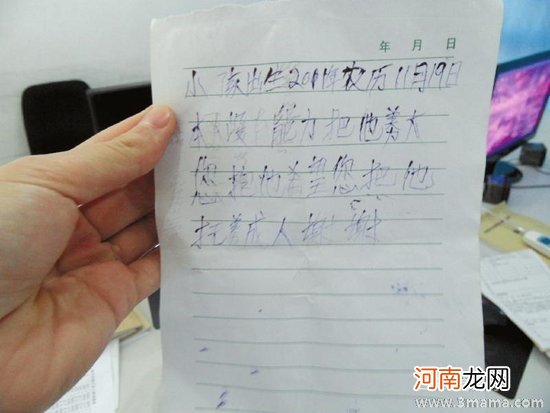 年 月 日
小孩出生2011年农历11月19日
本人没有能力把他养大
您抱他希望您把他
扶养成人谢谢
河南龙网
www.3mama.com